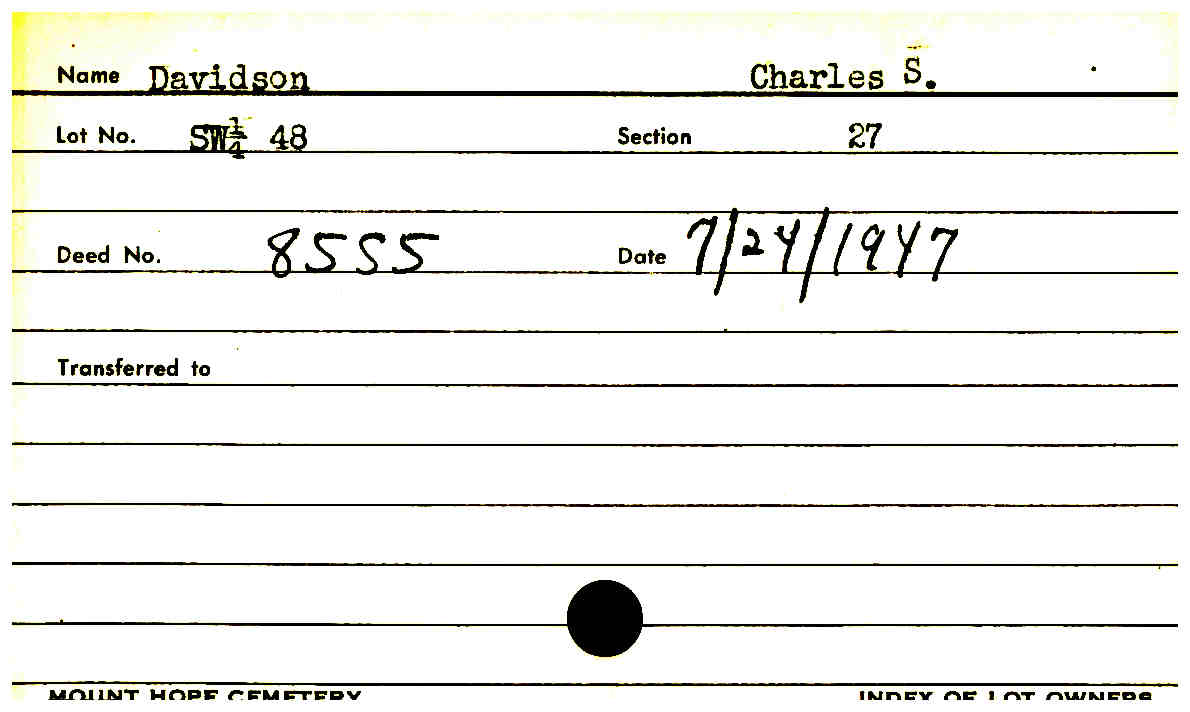 Name Davidson Charles S.
Lot No. SW¼ 48 Section 27
Deed No. 8555 Date 7/24/1947
Transferred to
MOUNT HOPE CEMETERY INDEX OF LOT OWNERS